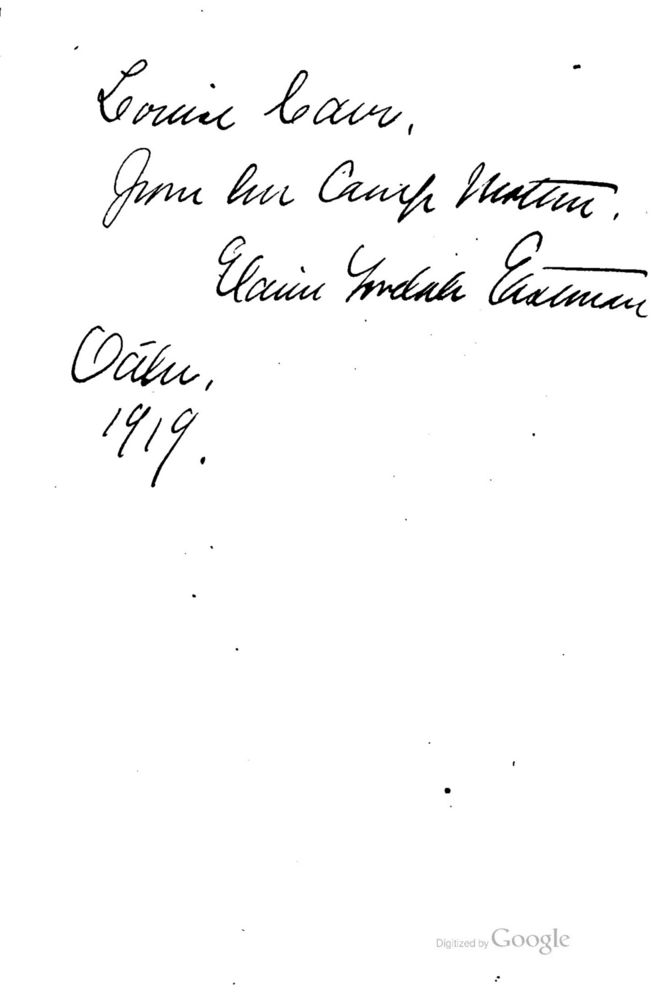 Louise Carr,
From her Camp Mother,
Elaine Goodale Eastman
Oahe,
1919.
Digitized by Google